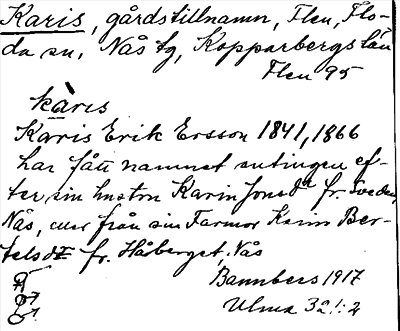 Karis, gårdstillnamn, Flen, Flo-
da sn, Nås tg, Kopparbergs län
Flen 95
kàris
Karis Erik Ersson 1841, 1866
har fått namnet antingen ef-
ter sin hustru Karin Jonsdr fr.
Nås, eller från sin Farmor Karin Ber-
telsdr fr. Håberget, Nås
Bannbers 1917
Ulma 321:2